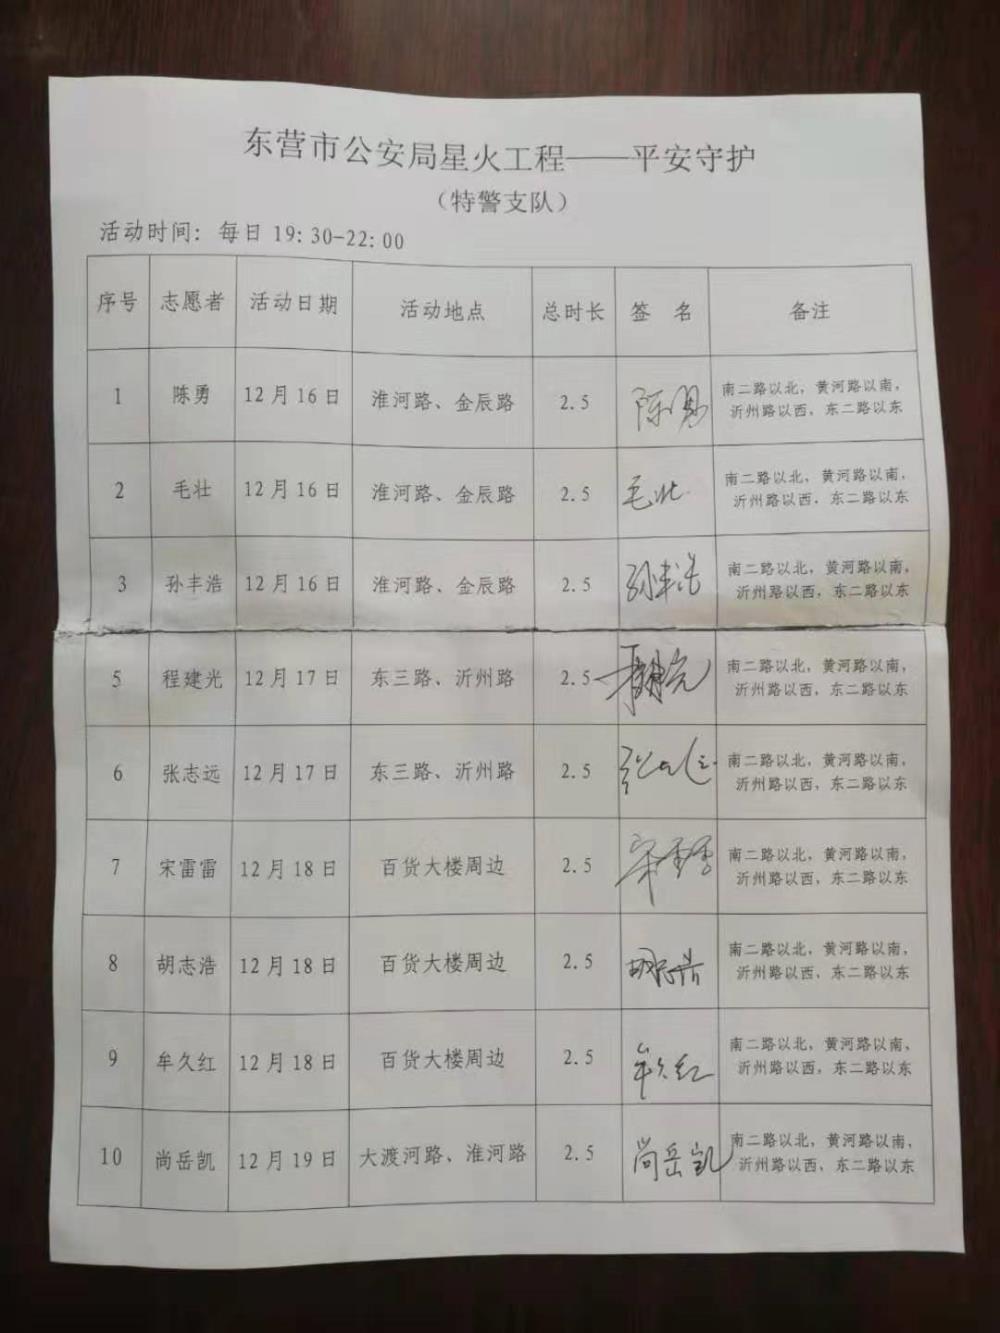 东营市公安局星火工程——平安守护
（特警支队）
活动时间：每日 19：30-22：00
序号 志愿者 活动日期 活动地点 总时长 签 名 备注
1 陈勇 12月16日 淮河路、金辰路 2.5 陈勇 南二路以北，黄河路以南，
沂州路以西，东二路以东
2 毛壮 12月16日 淮河路、金辰路 2.5 毛壮 南二路以北，黄河路以南，
沂州路以西，东二路以东
3 孙丰浩 12月16日 淮河路、金辰路 2.5 孙丰浩 南二路以北，黄河路以南，
沂州路以西，东二路以东
5 程建光 12月17日 东三路、沂州路 2.5 南二路以北，黄河路以南，
沂州路以西，东二路以东
6 张志远 12月17日 东三路、沂州路 2.5 张志远 南二路以北，黄河路以南，
沂州路以西，东二路以东
7 宋雷雷 12月18日 百货大楼周边 2.5 宋雷雷 南二路以北，黄河路以南，
沂州路以西，东二路以东
8 胡志浩 12月18日 百货大楼周边 2.5 胡志浩 南二路以北，黄河路以南，
沂州路以西，东二路以东
9 牟久红 12月18日 百货大楼周边 2.5 牟久红 南二路以北，黄河路以南、
沂州路以西、东二路以东
10 尚岳凯 12月19日 大渡河路、淮河路 2.5 尚岳凯 南二路以北，黄河路以南，
沂州路以西、东二路以东